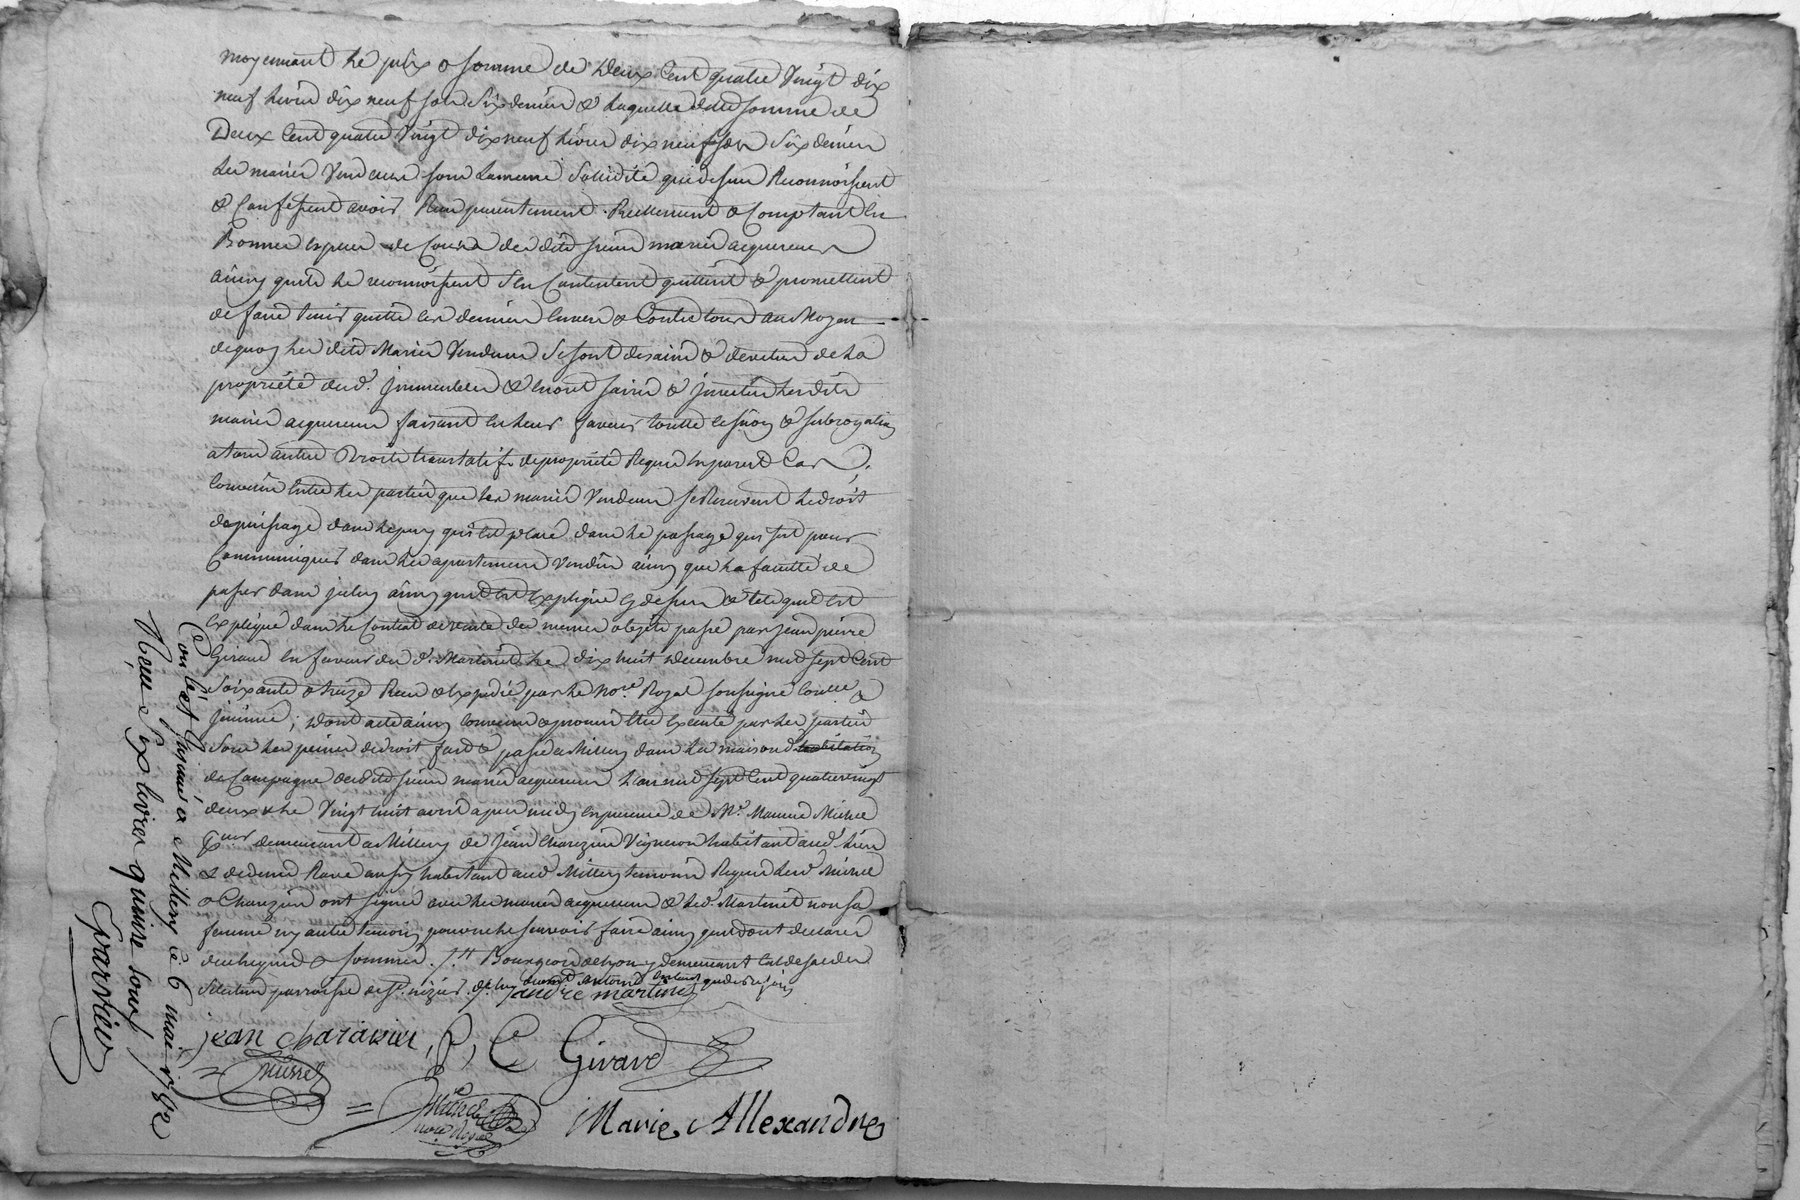 moyennant le prix & somme de deux Cent quatre Vingt dix
neuf livres dix neuf sols Six deniers & laquelle ditte somme de
Deux Cent quatre Vingt dix neuf livres dix neuf sols Six deniers
les mariés Vendeurs sous la meme Sollidité que dessus Reconnoissent
& Confessent avoir Reçu presentement Reellement & Comptant en
Bonnes especes de Cours des dits sieurs mariés acquereurs
ainsy quils le reconnoissent S'en Contentent quittent & promettent
de faire tenir quitte les derniers envers & Contre tous au Moyen
dequoy les dits Mariés Vendeurs Se sont desaisis & devetus de la
propriété desd. jmmeubles & en ont saisis & jnvestis lesdits
mariés acquereurs faisant en leur faveur toutte cession & subrogation
a tous autres Droits translatifs de propriété Requis
Convenu Entre les parties que les mariés Vendeurs se Reservent le droit
de puissage dans le puy qui est placé dans le passage qui sert pour
Communiquer dans les apartements Vendus ainsy que la faculté de
passer dans jceluy ainsy quil est Expliqué cy dessus & tel quil est
Expliqué dans le Contrat de vente des memes objets passé par jean pierre
Giraud en faveur du d. Martinet le dix huit decembre mil sept Cent
Soixante & treize Reçu & Expedié par le Nore Royal soussigné Controllé &
jnsinué, dont acte ainsy convenu & promis Etre Executé par les parties
sous les peines de droit fait & passé a Millery dans la maison d'habitation
de Campagne desdits sieurs mariés acquereurs L'an mil sept Cent quatrevingt
deux & le Vingt huit avril apres midy en presence de Mr. Michel
demeurant a Millery de Jean Charezieu Vigneron habitant aud. lieu
& de Rave aussy habitant aud. Millery temoins Requis led. Michel
& Charezieu ont signés avec les mariés acquereurs & led. Martinet non sa
femme ny autre temoin pour ne le scavoir faire ainsy quils ont declarés
de ce Enquis & Sommés. Bourgeois de Lyon y demeurant
parroisse de St. nizier
andré martinet
jean charavieu, P, C Girard
Marie Allexandre
nore Royal
Con.lé et jnsinué a Millery le 6 mai 1782
Reçu Six livres quinse sous